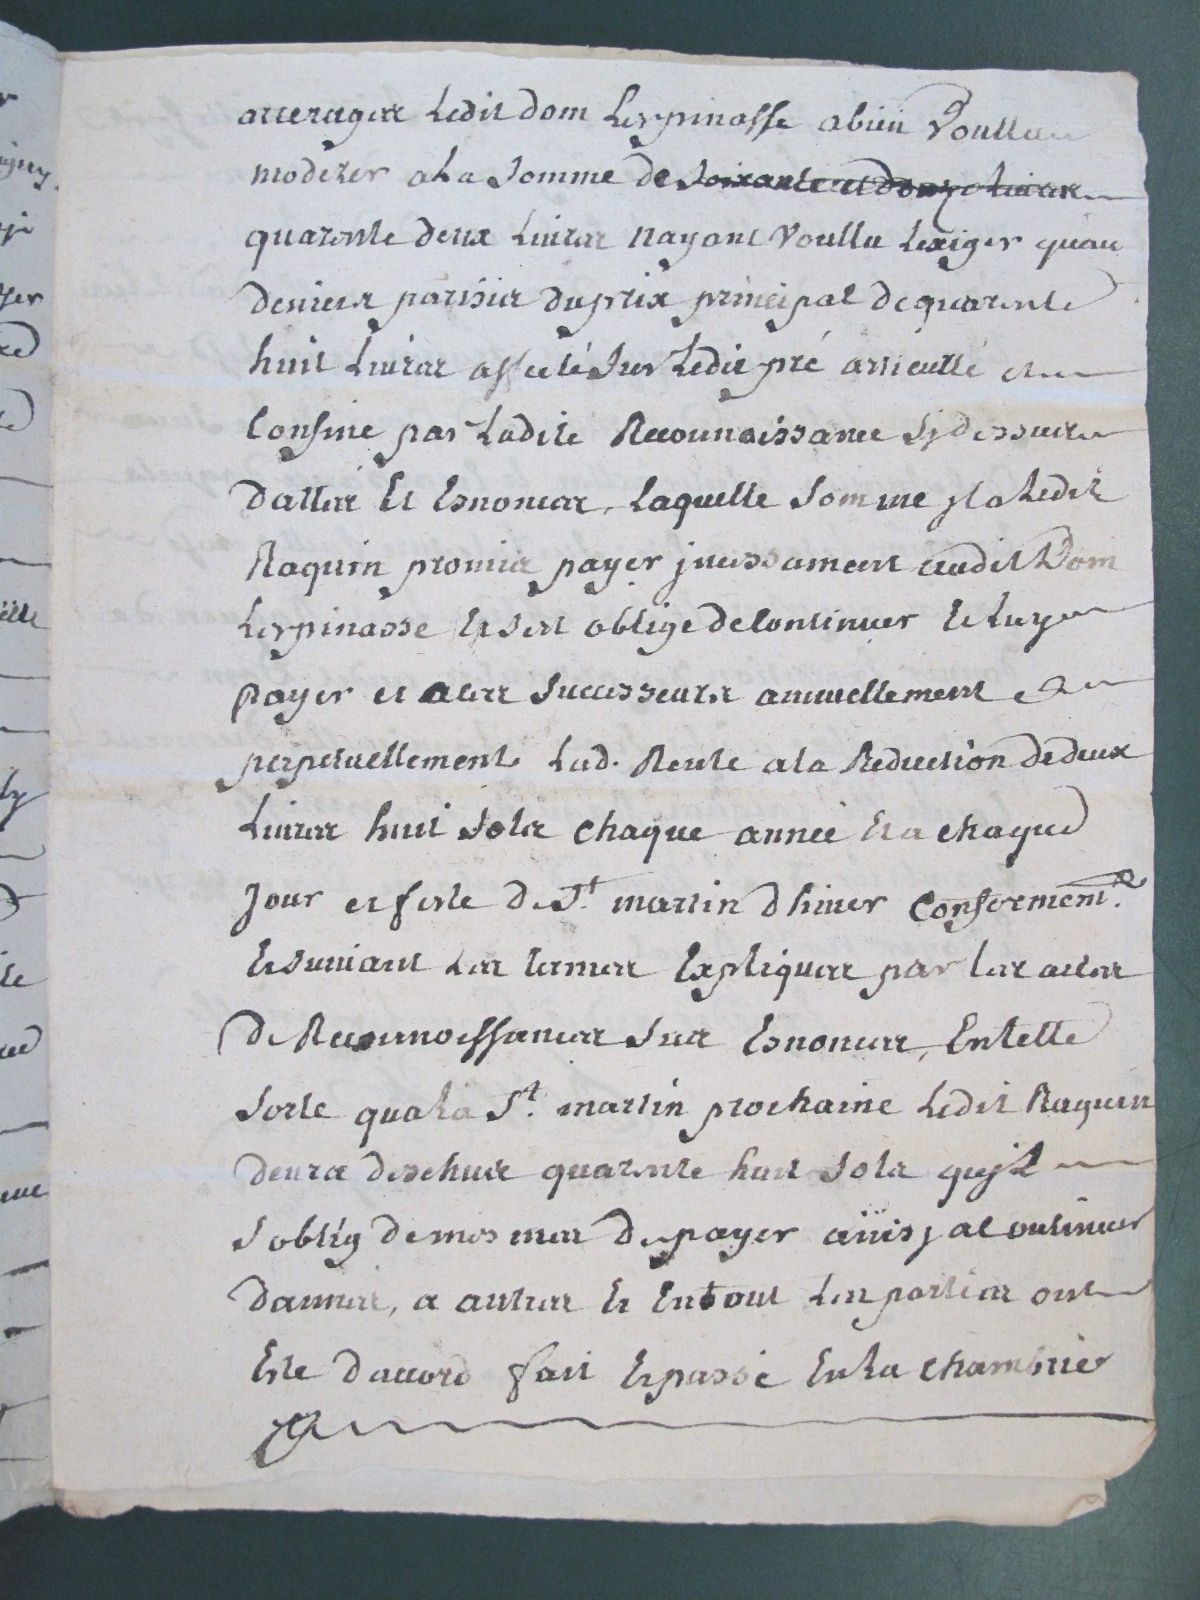 arrerages ledit dom Lespinasse a bien Voullu
moderer a la somme de soixante et douze livres
quarente deux livres nayant Voullu lexiger quau
deniers parisis du prix principal de quarente
huit livres affecté sur ledit pré articullé et
Confine par ladite Recounoissance sy dessus
dattes et Esnonces, laquelle somme ledit
Raquin promis payer jncessament audit Dom
Lespinasse et sest oblige de Continuer le luy
payer et a ses successeurs annuellement et
perpetuellement lad. Rente a la Reduction de deux
livres huit sols chaque année et a chaque
Jour et feste de St. martin dhiver Conforment.
Et suivant les termes Expliques par les actes
de Recounoissances sus Esnonces, En telle
sorte qua la St. martin prochaine ledit Raquin
devra descheus quarente huit sols qujl
soblig de mesmes de payer ainsj a Continuer
dannes, a autres et En tout les parties ont
Este daccord fait et passé En la chambrier